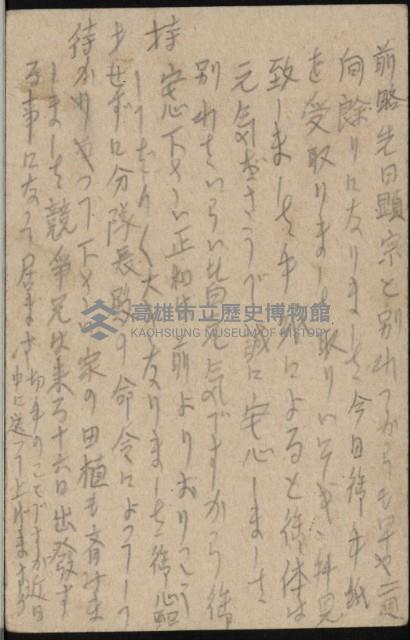 前略先日顕宗と別れてからも早や一週
間餘りになりました今日御手紙
を受取りました取りいそぎ拝見
致しました手紙によると御体は
元気ださうで誠に安心しました
別れていらい私も元気ですから御
安心下さい正和は前よりおりこう
してだいぶ大きくなりました御心配
せずに分隊長殿の命令によってしっ
かりやって下さい家の田植も済みま
しました競争兄は来る十六日出發す
る事になって居ます切手のことですが近日
中に送って上げませう
高雄市立歷史博物館
KAOHSIUNG MUSEUM OF HISTORY